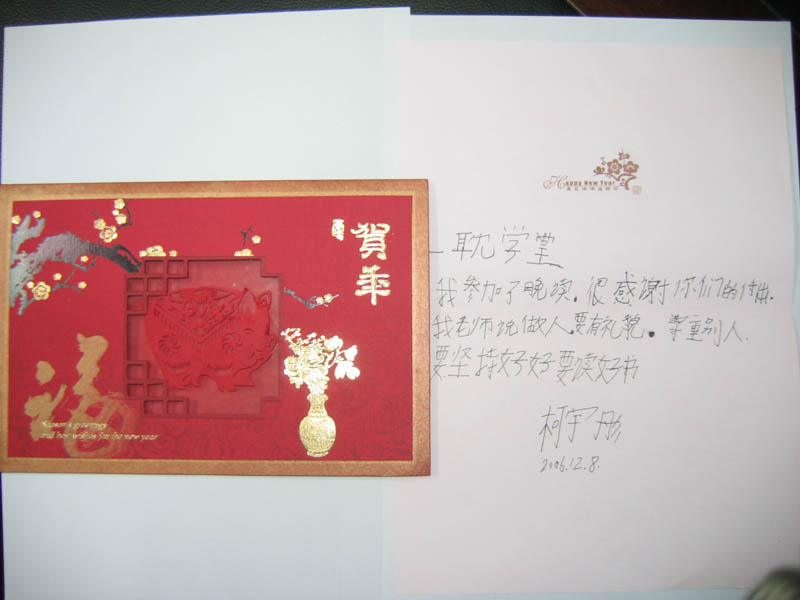 賀年
福
Season's greetings
and best wishes for the new year
Happy New Year
一耽学堂
我参加了晚读.很感谢你们的付出.
我老师说做人要有礼貌。尊重别人.
要坚持好好要读好书
柯宇彤
2006.12.8.